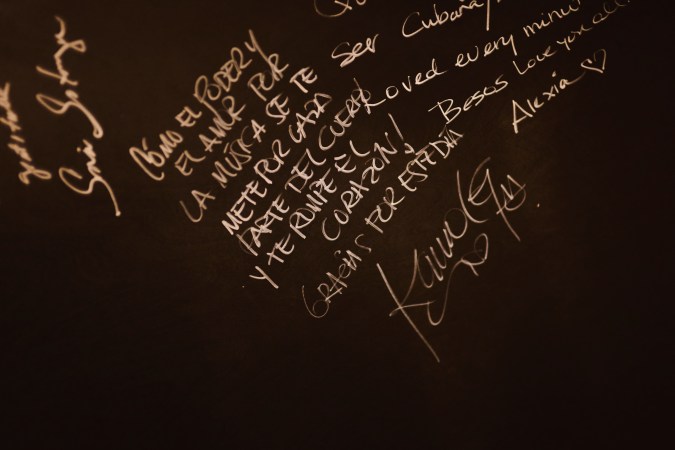 CÓMO EL PODER Y
EL AMOR POR
LA MÚSICA SE TE
METE POR CADA
PARTE DEL CUERPO
Y TE ROMPE EL
CORAZÓN!
GRACIAS POR ESTE DÍA
Ser Cubana,
Loved every minute
Besos Love you all
Alexia